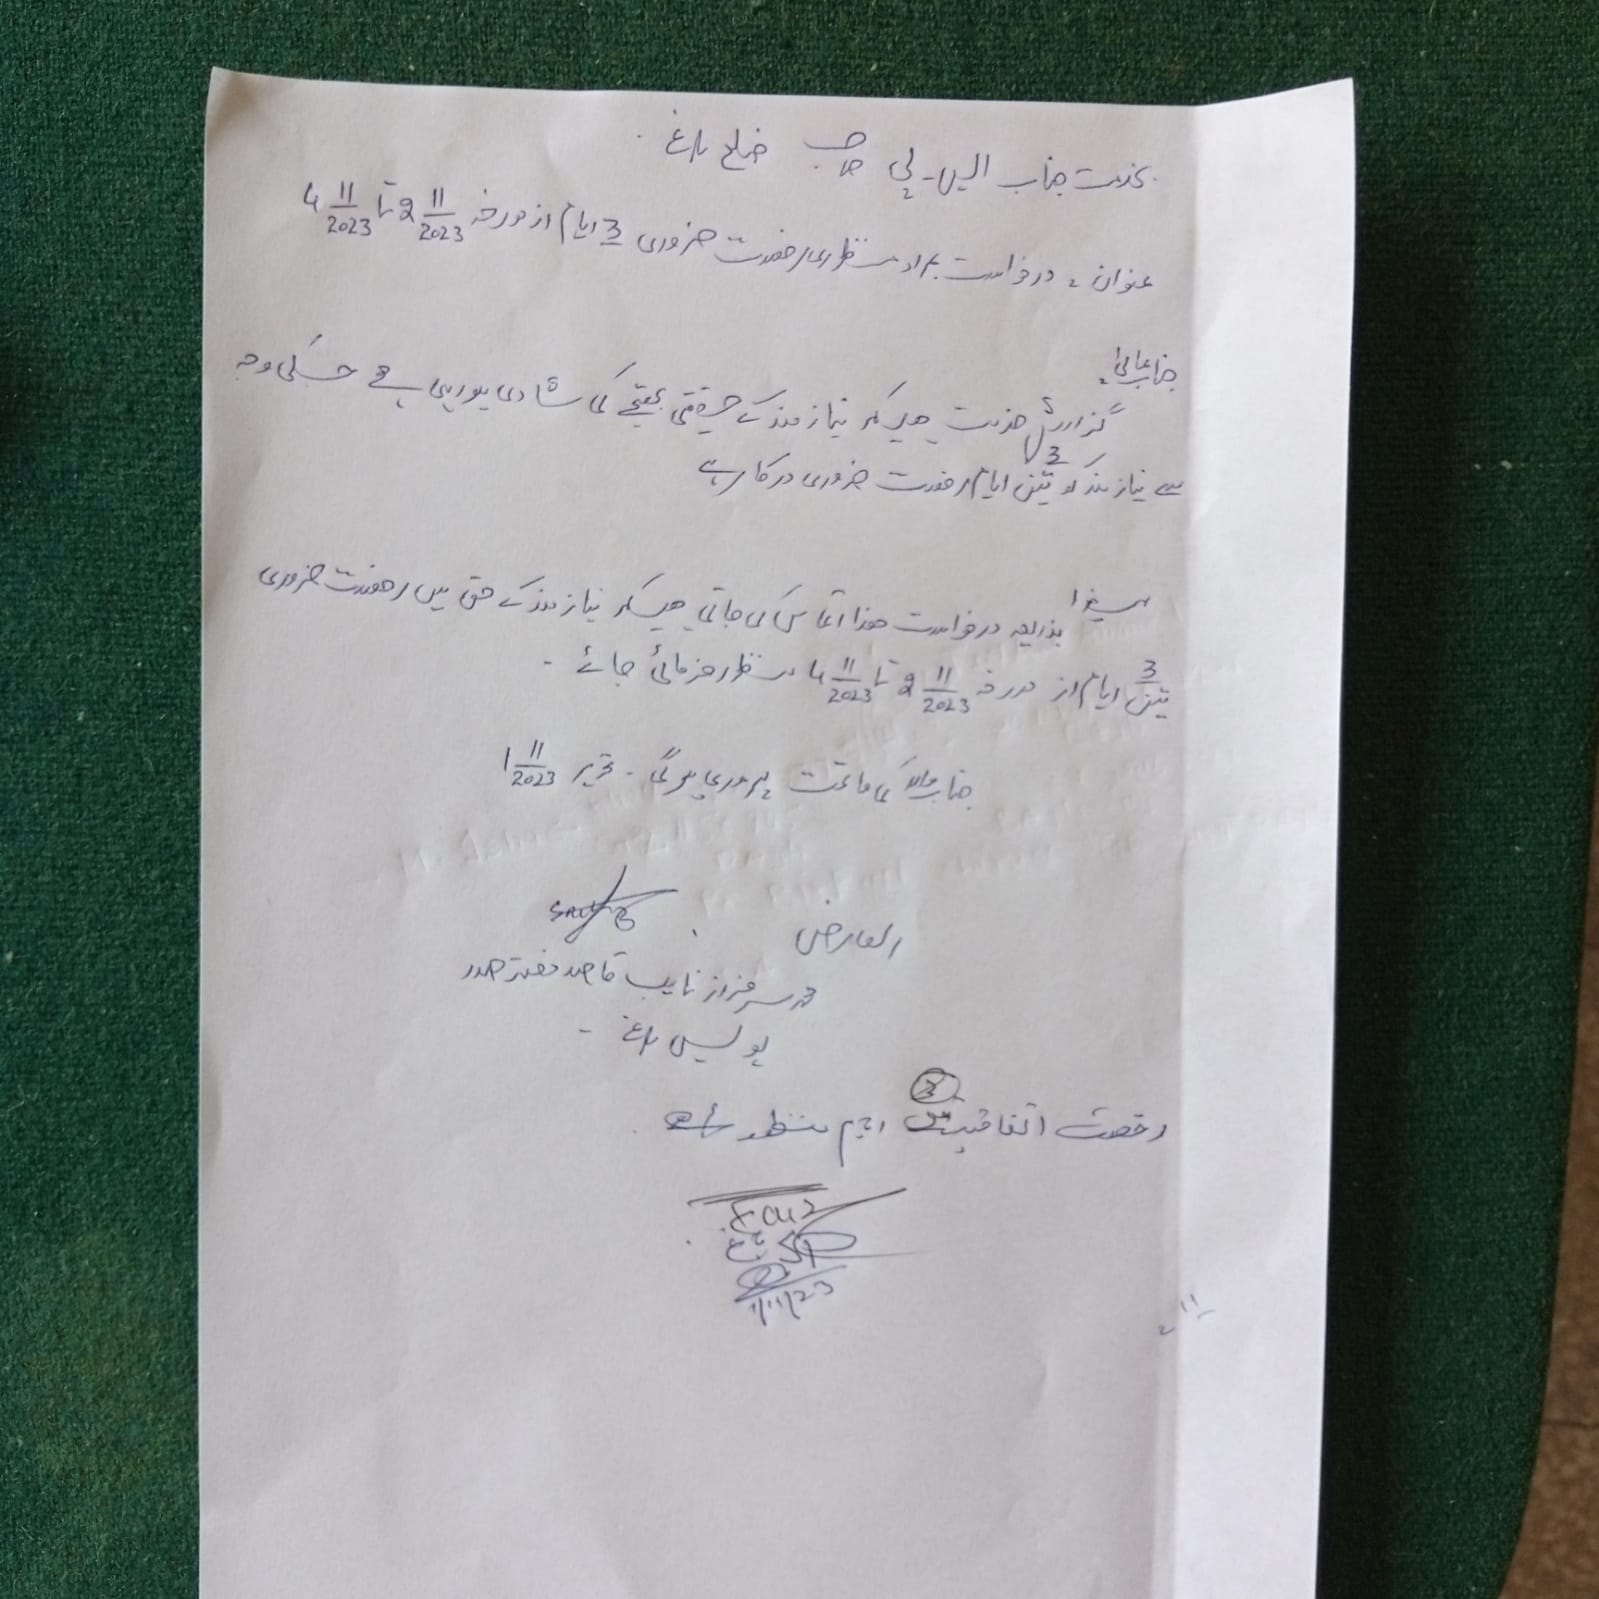 بخدمت جناب ایس۔پی صاحب ضلع باغ۔
عنوان۔ درخواست بمراد منظوری رخصت ضروری 3 ایام از مورخہ 2 11/2023 تا 4 11/2023
جناب عالی۔
گزارش خدمت ہیکہ نیازمند کے حقیقی بھتیجے کی شادی ہو رہی ہے جسکی وجہ
سے نیازمند کو تین 3 ایام رخصت ضروری درکار ہے
لہذا
بذریعہ درخواست ھذا التماس کی جاتی ہیکہ نیازمند کے حق میں رخصت ضروری
3 تین ایام از مورخہ 2 11/2023 تا 4 11/2023 منظور فرمائی جائے۔
جناب والا کی ماتحت پروری ہو گی۔ تحریر 1 11/2023
العارض
محمد سرفراز نایب قاصد دفتر صدر
پولیس باغ۔
رخصت اتفاقیہ تین 3 ایام منظور ہے۔
SP باغ
1/11/23